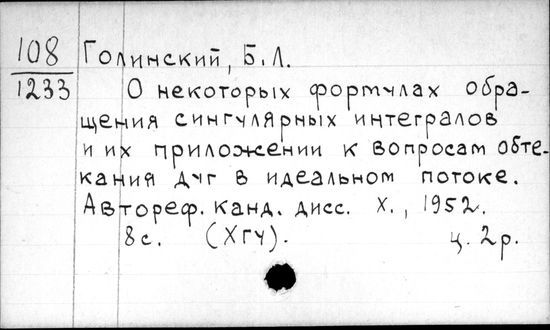 108 Голинский, Б.Л.
1233 О некоторых формулах обра-
щения сингулярных интегралов
и их приложении к вопросам обте-
кания дуг в идеальном потоке.
Автореф. канд. дисс. Х., 1952.
8с. (ХГУ). ц. 2р.